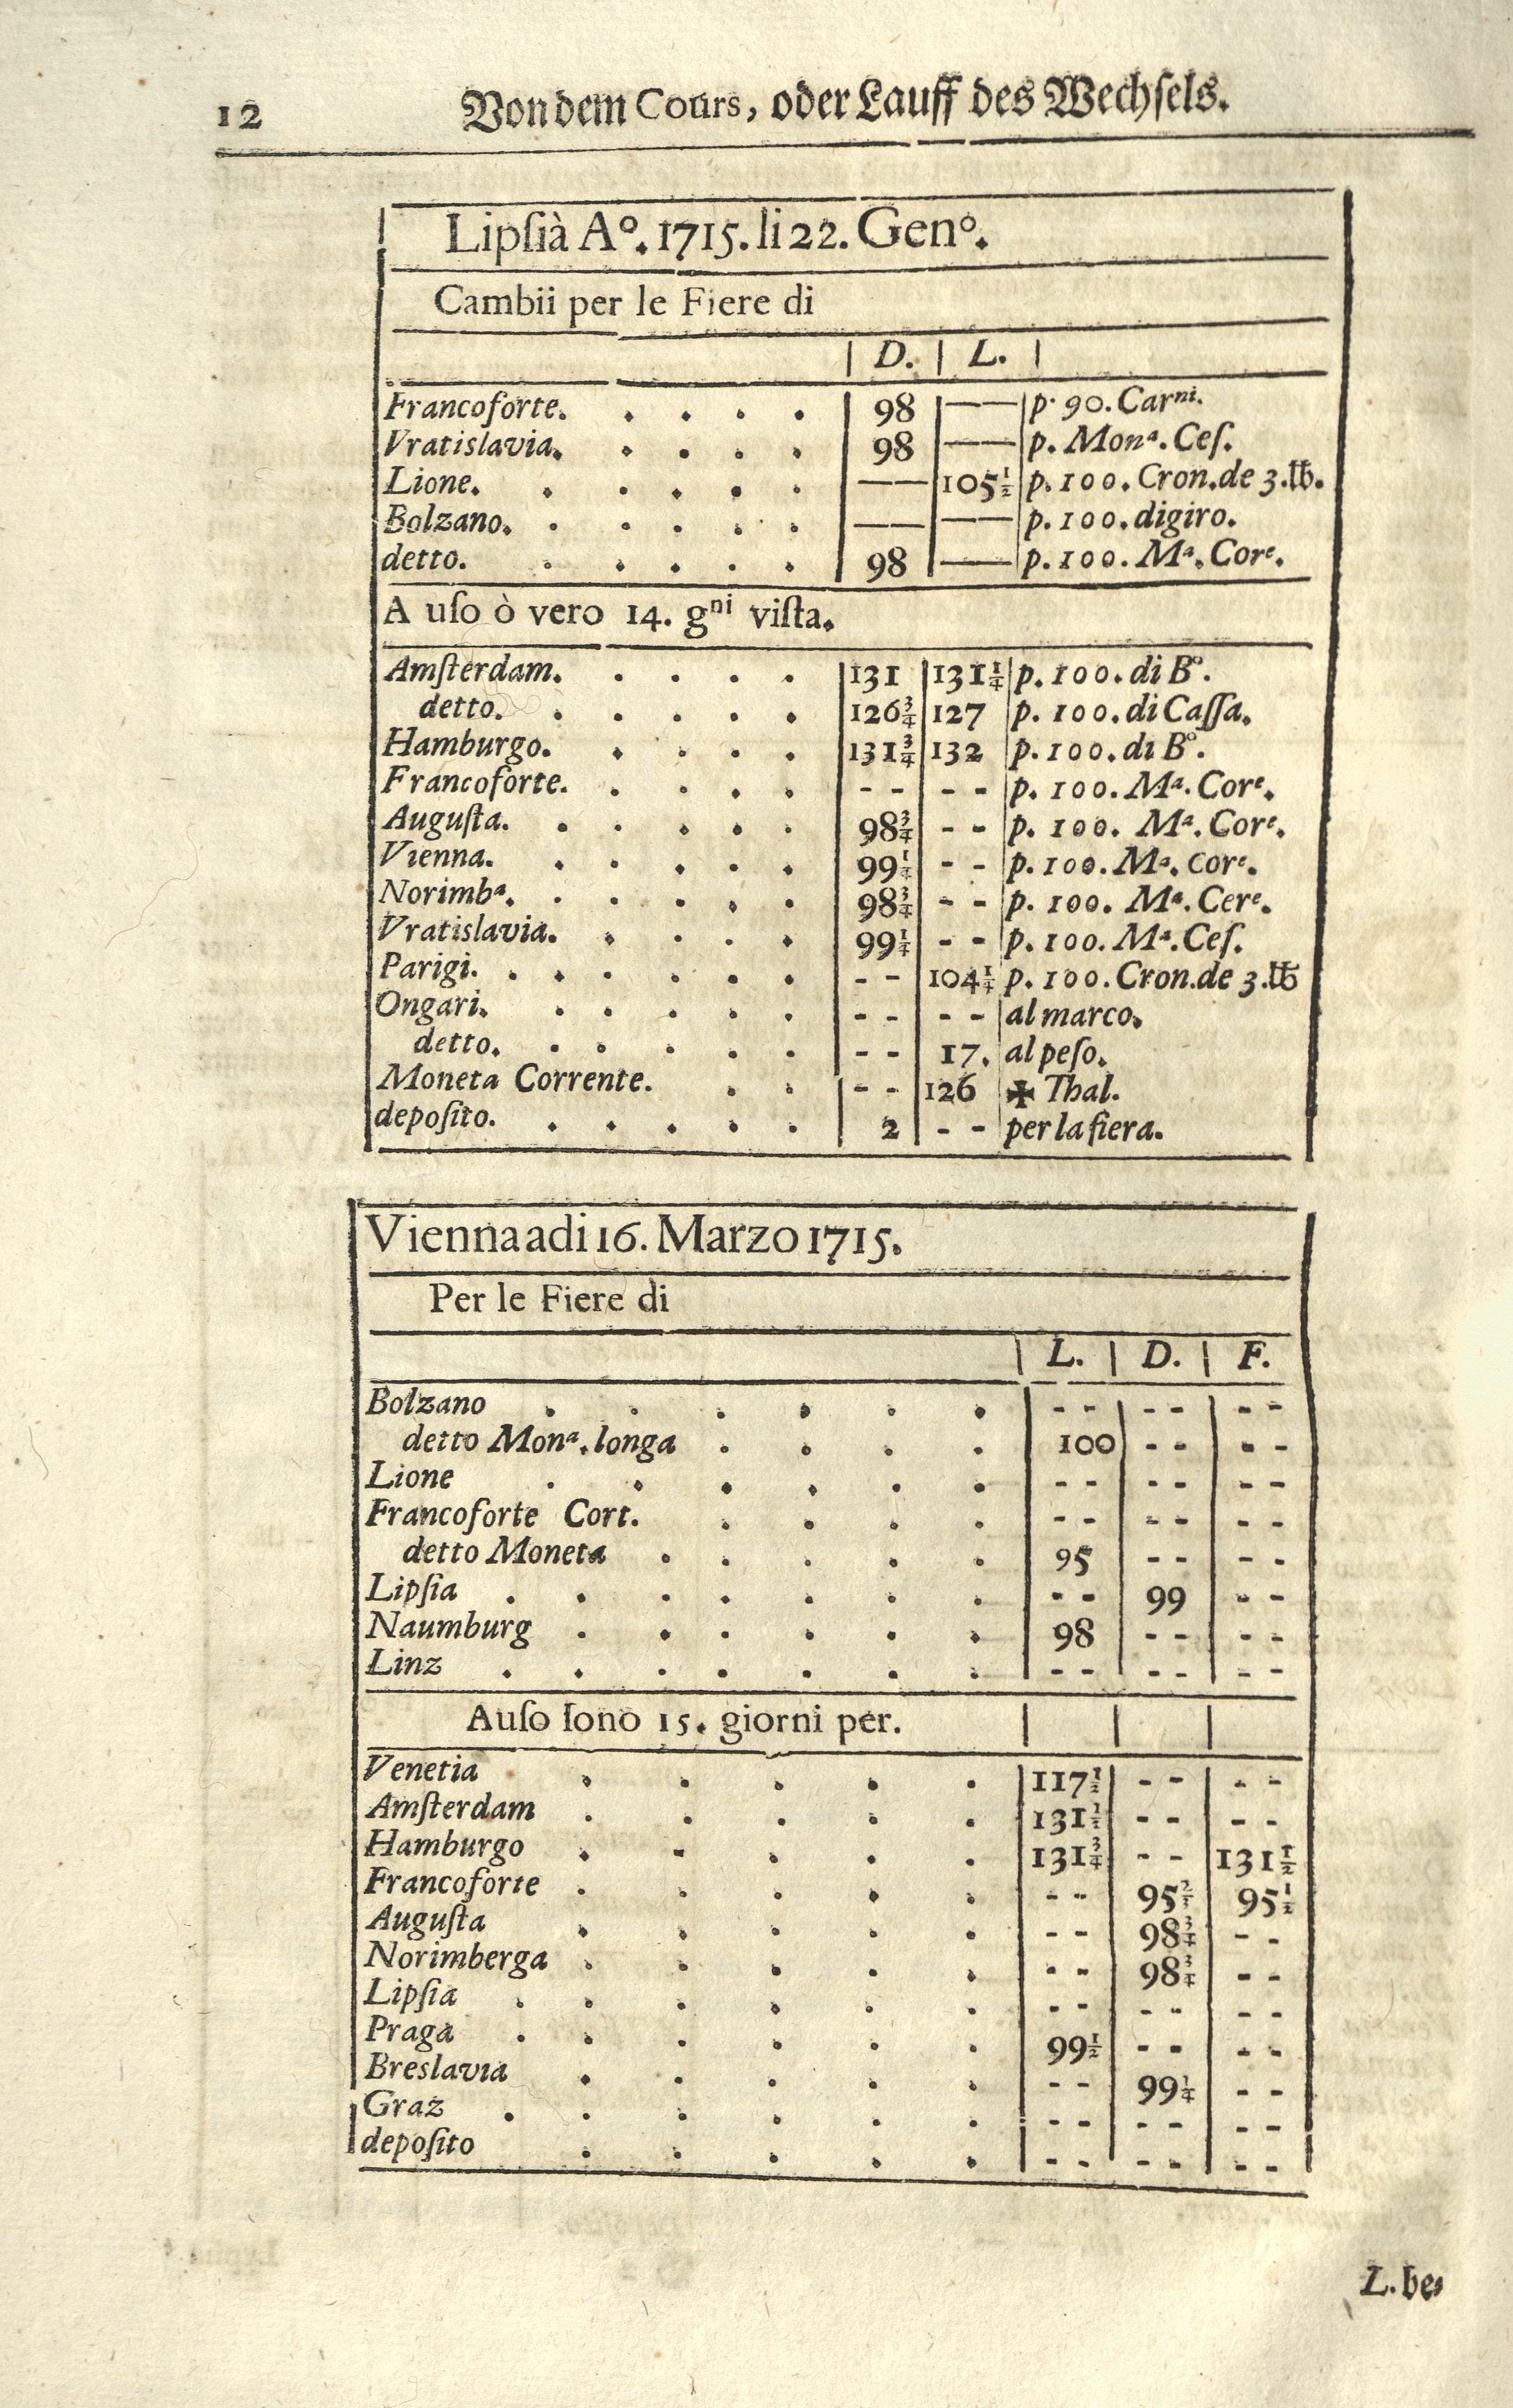 12 Von dem Cours, oder Lauff des Wechsels.
Lipſià Aº. 1715. li 22. Genº.
Cambii per le Fiere di
D. L.
Francoforte. . . . . 98 —— p. 90. Carⁿⁱ.
Vratislavia. . . . . 98 —— p. Monᵃ. Ceſ.
Lione. . . . . . —— 105½ p. 100. Cron. de 3. ℔.
Bolzano. . . . . . —— —— p. 100. digiro.
detto. . . . . . 98 —— p. 100. Mᵃ. Corᵉ.
A uſo ò vero 14. gⁿⁱ viſta.
Amſterdam. . . . . 131 131¼ p. 100. di Bº.
detto. . . . . . 126¾ 127 p. 100. di Caſſa.
Hamburgo. . . . . 131¾ 132 p. 100. di Bº.
Francoforte. . . . . - - - - p. 100. Mᵃ. Corᵉ.
Auguſta. . . . . . 98¾ - - p. 100. Mᵃ. Corᵉ.
Vienna. . . . . . 99¼ - - p. 100. Mᵃ. Corᵉ.
Norimbᵃ. . . . . . 98¾ - - p. 100. Mᵃ. Cerᵉ.
Vratislavia. . . . . 99¼ - - p. 100. Mᵃ. Ceſ.
Parigi. . . . . . . - - 104¼ p. 100. Cron. de 3. ℔
Ongari. . . . . . - - - - al marco.
detto. . . . . . - - 17. al peſo.
Moneta Corrente. . . - - 126 ✠ Thal.
depoſito. . . . . . 2 - - per la fiera.
Vienna adi 16. Marzo 1715.
Per le Fiere di
L. D. F.
Bolzano . . . . . . - - - - - -
detto Monᵃ. longa . . . . 100 - - - -
Lione . . . . . . - - - - - -
Francoforte Cort. . . . . - - - - - -
detto Moneta . . . . . 95 - - - -
Lipſia . . . . . . . - - 99 - -
Naumburg . . . . . . 98 - - - -
Linz . . . . . . . - - - - - -
A uſo ſono 15. giorni per.
Venetia . . . . . 117½ - - - -
Amſterdam . . . . . 131½ - - - -
Hamburgo . . . . . 131¾ - - 131½
Francoforte . . . . . - - 95⅔ 95½
Auguſta . . . . . - - 98¾ - -
Norimberga . . . . . - - 98¾ - -
Lipſia . . . . . . - - - - - -
Praga . . . . . . 99½ - - - -
Breslavia . . . . . - - 99¼ - -
Graz . . . . . . - - - - - -
depoſito . . . . . - - - - - -
L. be⸗